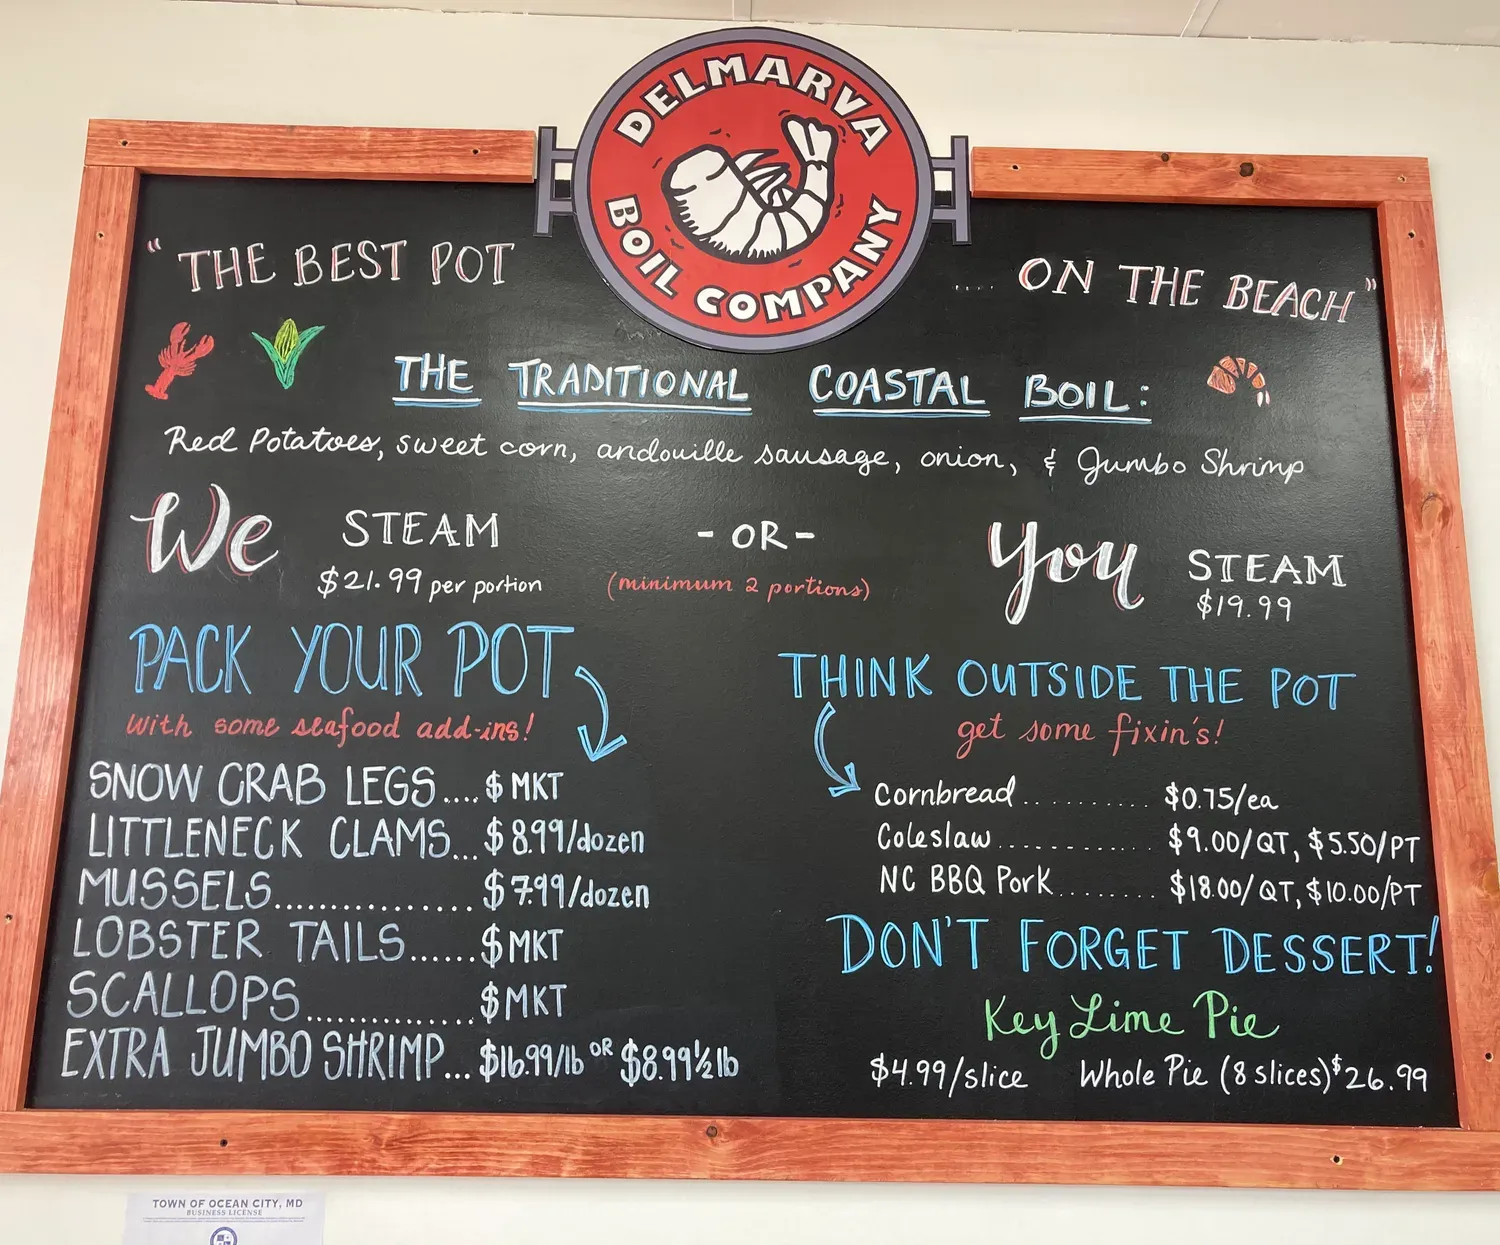 DELMARVA
BOIL COMPANY
"THE BEST POT .... ON THE BEACH"
THE TRADITIONAL COASTAL BOIL:
Red Potatoes, sweet corn, andouille sausage, onion, & Jumbo Shrimp
We STEAM
$21.99 per portion
-OR-
(minimum 2 portions)
You STEAM
$19.99
PACK YOUR POT
with some seafood add-ins!
SNOW CRAB LEGS.... $ MKT
LITTLENECK CLAMS... $8.99/dozen
MUSSELS................ $7.99/dozen
LOBSTER TAILS...... $MKT
SCALLOPS............... $MKT
EXTRA JUMBO SHRIMP... $16.99/lb OR $8.99 ½ lb
THINK OUTSIDE THE POT
get some fixin's!
Cornbread........... $0.75/ea
Coleslaw............. $9.00/QT, $5.50/PT
NC BBQ Pork........ $18.00/QT, $10.00/PT
DON'T FORGET DESSERT!
Key Lime Pie
$4.99/slice Whole Pie (8 slices) $26.99
TOWN OF OCEAN CITY, MD
BUSINESS LICENSE